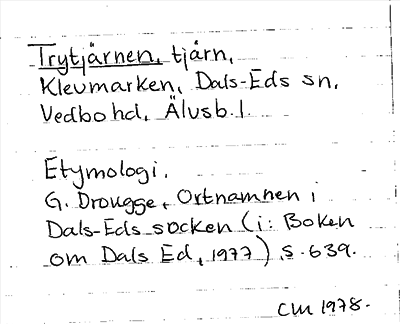 Trytjärnen, tjärn,
Klevmarken, Dals-Eds sn,
Vedbo hd, Älvsb. l.
Etymologi.
G. Drougge, Ortnamnen i
Dals-Eds socken (i: Boken
om Dals Ed, 1977) s. 639.
CM 1978.